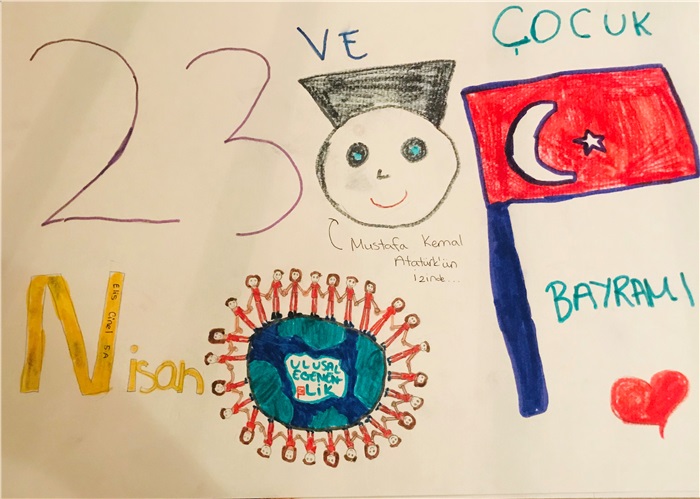 23
VE
ÇOCUK
Mustafa Kemal
Atatürk'ün
izinde...
Nisan
5A
ULUSAL
EGEMEN-
LİK
BAYRAMI